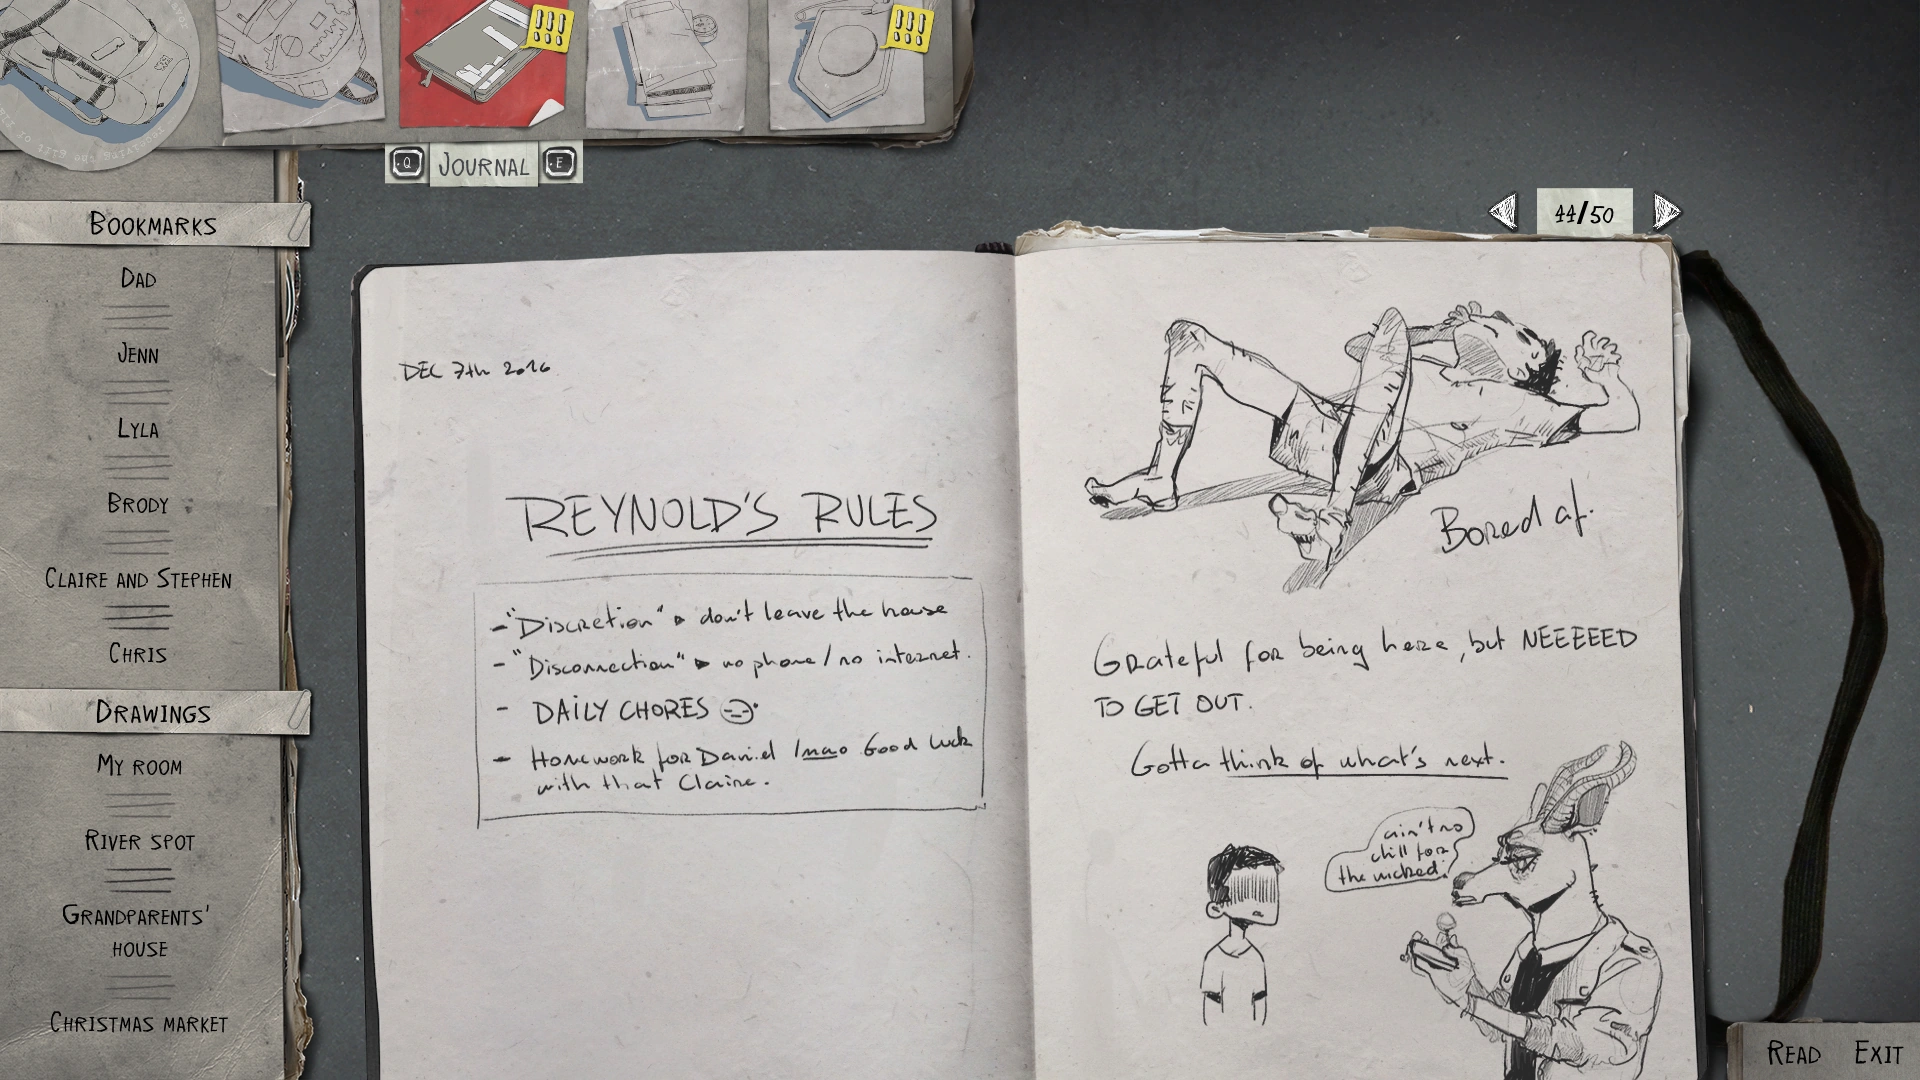 Q
JOURNAL
E
44/50
BOOKMARKS
DAD
JENN
LYLA
BRODY
CLAIRE AND STEPHEN
CHRIS
DRAWINGS
MY ROOM
RIVER SPOT
GRANDPARENTS'
HOUSE
CHRISTMAS MARKET
DEC 7th 2016
REYNOLD'S RULES
- "Discretion" ▸ don't leave the house
- "Disconnection" ▸ no phone / no internet.
- DAILY CHORES
- Homework for Daniel lmao Good luck
with that Claire.
Bored af.
Grateful for being here, but NEEEEED
TO GET OUT.
Gotta think of what's next.
ain't no
chill for
the wicked.
READ
EXIT